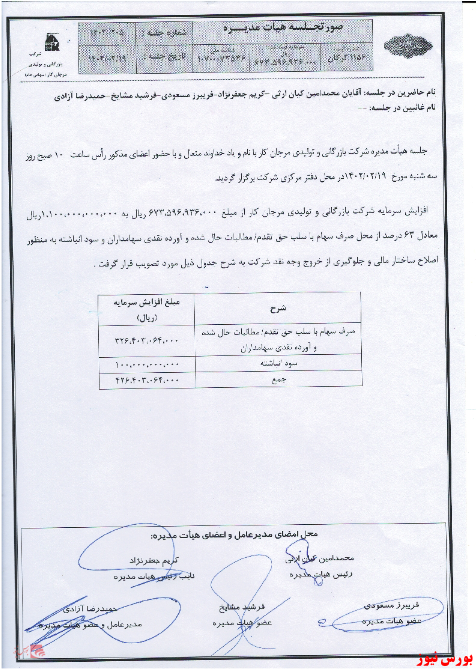 صورتجلسه هیأت مدیره
شماره جلسه :
تاریخ جلسه :
۱۴۰۲/۰۲/۱۹
۶۷۳،۵۹۶،۹۳۶،۰۰۰
شرکت
بازرگانی و تولیدی
مرجان کار(سهامی عام)
نام حاضرین در جلسه: آقایان محمدامین کیان ارثی -کریم جعفرنژاد-فریبرز مسعودی-فرشید مشایخ-حمیدرضا آزادی
نام غائبین در جلسه: --
جلسه هیأت مدیره شرکت بازرگانی و تولیدی مرجان کار با نام و یاد خداوند متعال و با حضور اعضای مذکور رأس ساعت ۱۰ صبح روز
سه شنبه مورخ ۱۴۰۲/۰۲/۱۹در محل دفتر مرکزی شرکت برگزار گردید.
افزایش سرمایه شرکت بازرگانی و تولیدی مرجان کار از مبلغ ۶۷۳،۵۹۶،۹۳۶،۰۰۰ ریال به ۱،۱۰۰،۰۰۰،۰۰۰،۰۰۰ریال
معادل ۶۳ درصد از محل صرف سهام با سلب حق تقدم/ مطالبات حال شده و آورده نقدی سهامداران و سود انباشته به منظور
اصلاح ساختار مالی و جلوگیری از خروج وجه نقد شرکت به شرح جدول ذیل مورد تصویب قرار گرفت .
شرح
مبلغ افزایش سرمایه
(ریال)
صرف سهام با سلب حق تقدم/ مطالبات حال شده
و آورده نقدی سهامداران
۳۲۶،۴۰۳،۰۶۴،۰۰۰
سود انباشته
۱۰۰،۰۰۰،۰۰۰،۰۰۰
جمع
۴۲۶،۴۰۳،۰۶۴،۰۰۰
محل امضای مدیرعامل و اعضای هیأت مدیره:
محمدامین کیان ارثی
رئیس هیات مدیره
کریم جعفرنژاد
نایب رئیس هیات مدیره
فریبرز مسعودی
عضو هیات مدیره
فرشید مشایخ
عضو هیات مدیره
حمیدرضا آزادی
مدیرعامل و عضو هیات مدیره
بورس نیوز